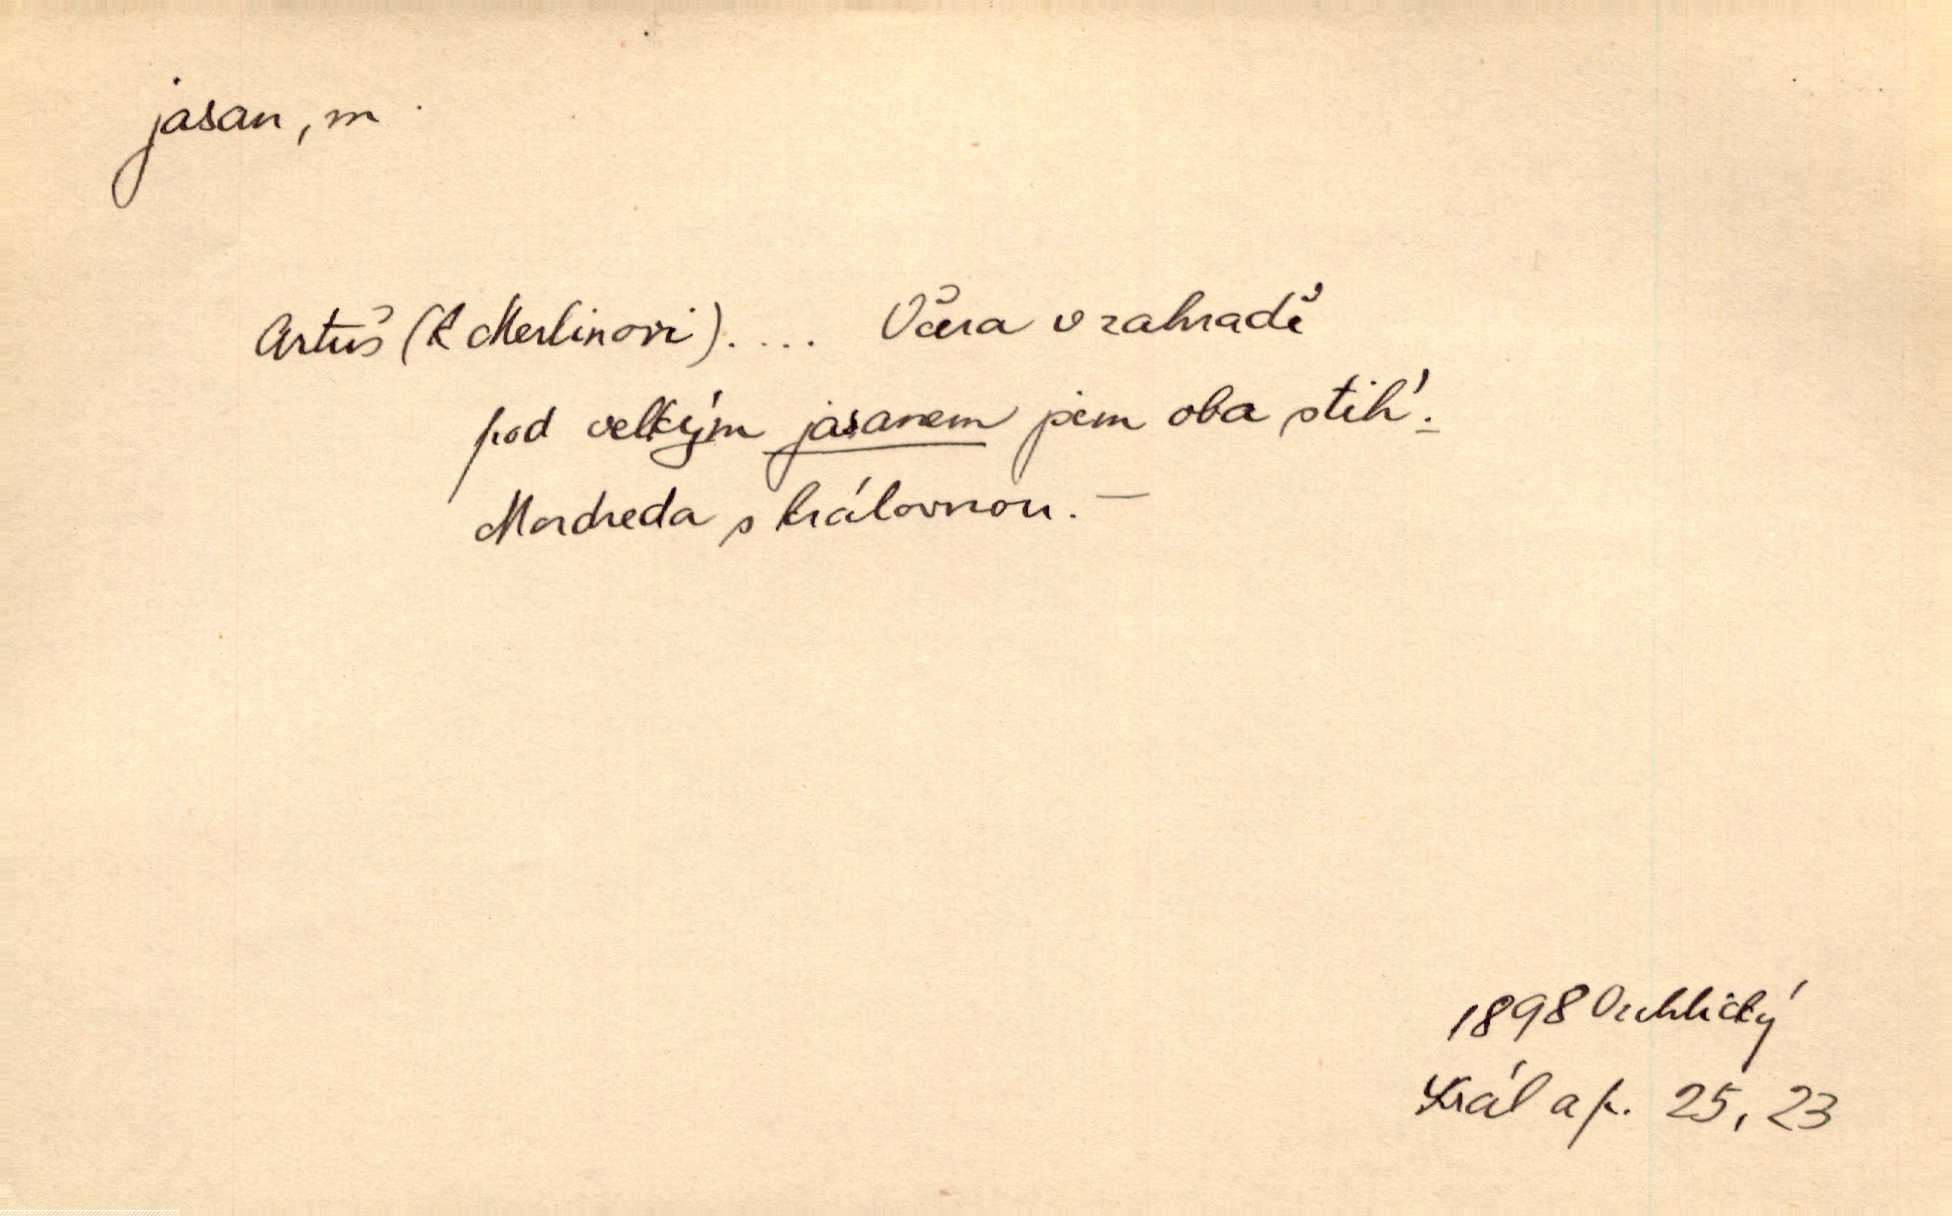 jasan, m.
Artuš (k Merlinovi).... Včera v zahradě
pod velkým jasanem jsem oba stih'.
Mordreda s královnou. —
1898 Vrchlický
Král a p. 25, 23